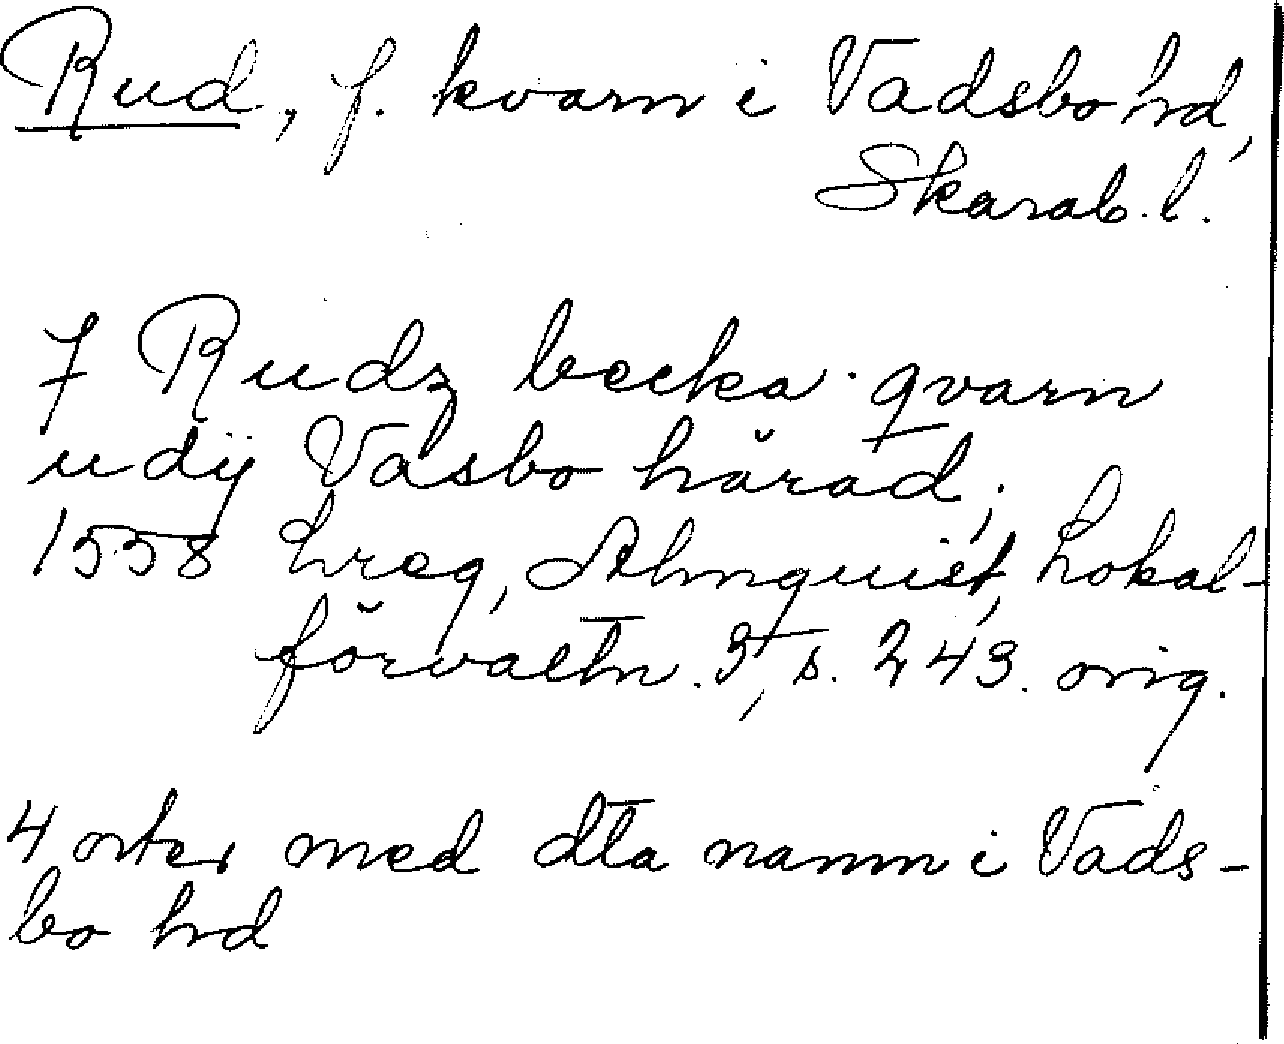 Rud, f. kvarn i Vadsbo hd,
Skarab. l.
J Rudz becka qvarn
udÿ Vasbo härad;
1558 Lreg, Almquist, Lokal-
förvaltn. 3, s. 243. orig.
4 orter med dta namn i Vads-
bo hd